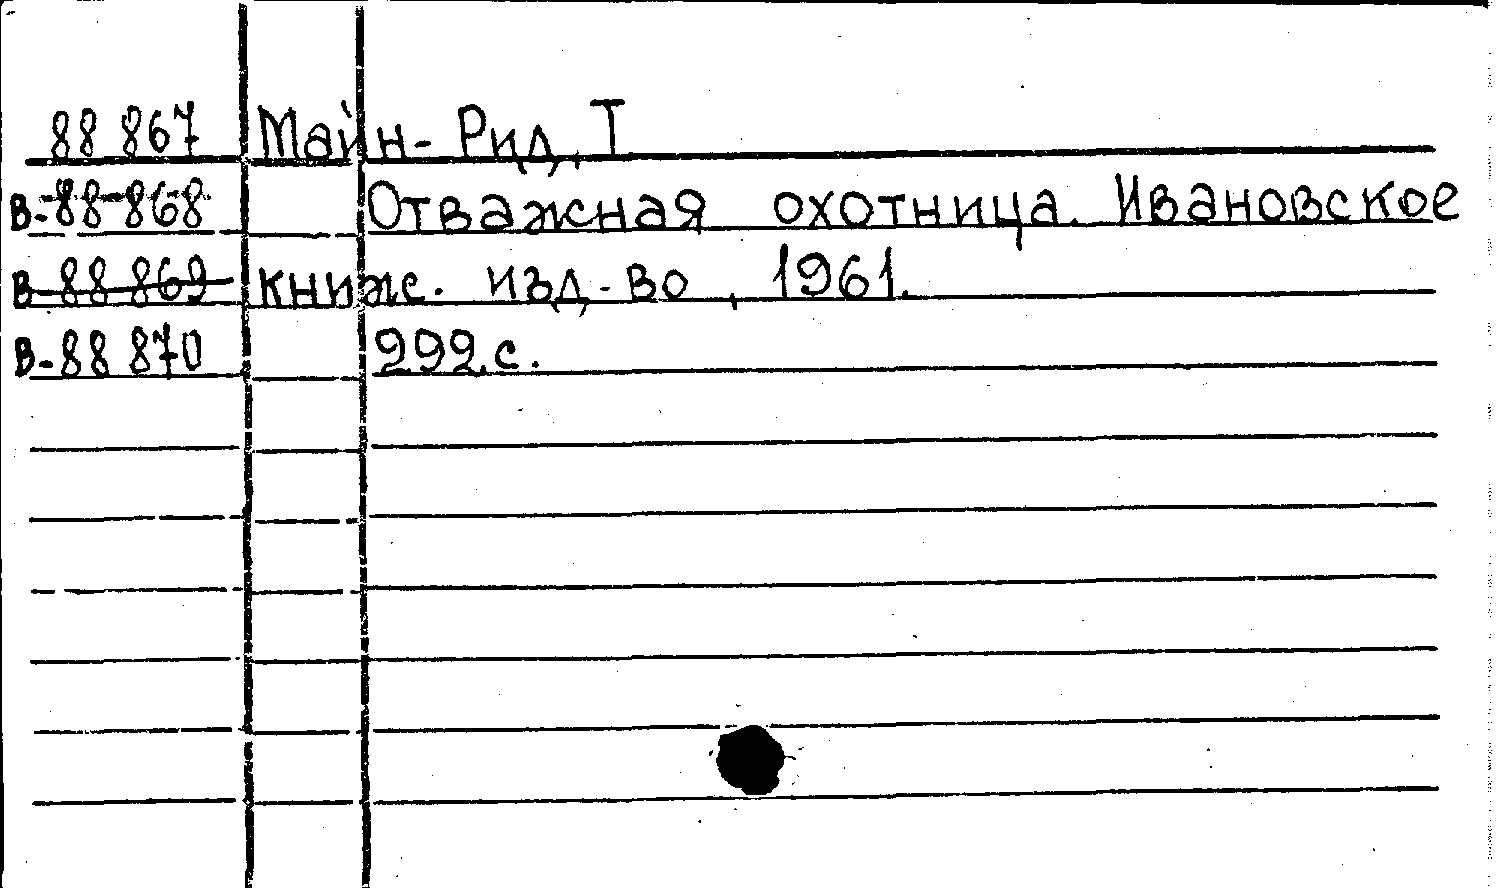 88 867 Майн-Рид, Т
В-88 868 Отважная охотница. Ивановское
В-88 869 книж. изд-во, 1961.
В-88 870 292.с.